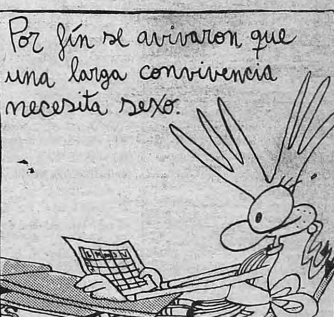 Por fín se avivaron que
una larga convivencia
necesita sexo.